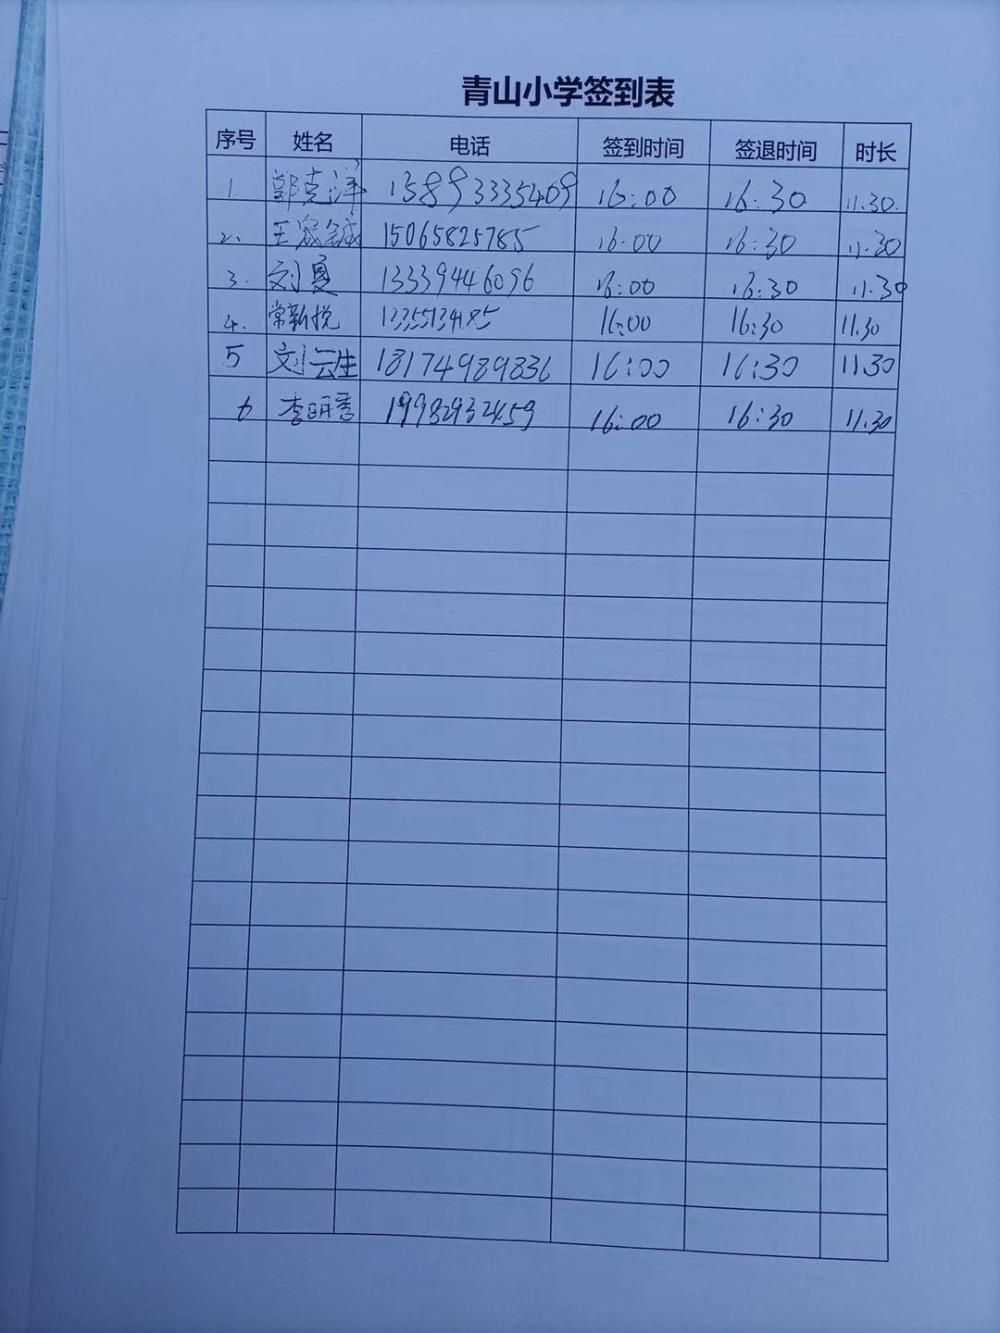 青山小学签到表
序号 姓名 电话 签到时间 签退时间 时长
1 郭克洋 15893335409 16:00 16:30 11.30.
2. 王家铖 15065825785 16:00 16:30 11.30
3. 刘夏 13339446096 16:00 16:30 11.30
4. 常新悦 13355134185 16:00 16:30 11.30
5 刘云生 18174989836 16:00 16:30 11.30
6 李明秀 19982932459 16:00 16:30 11.30